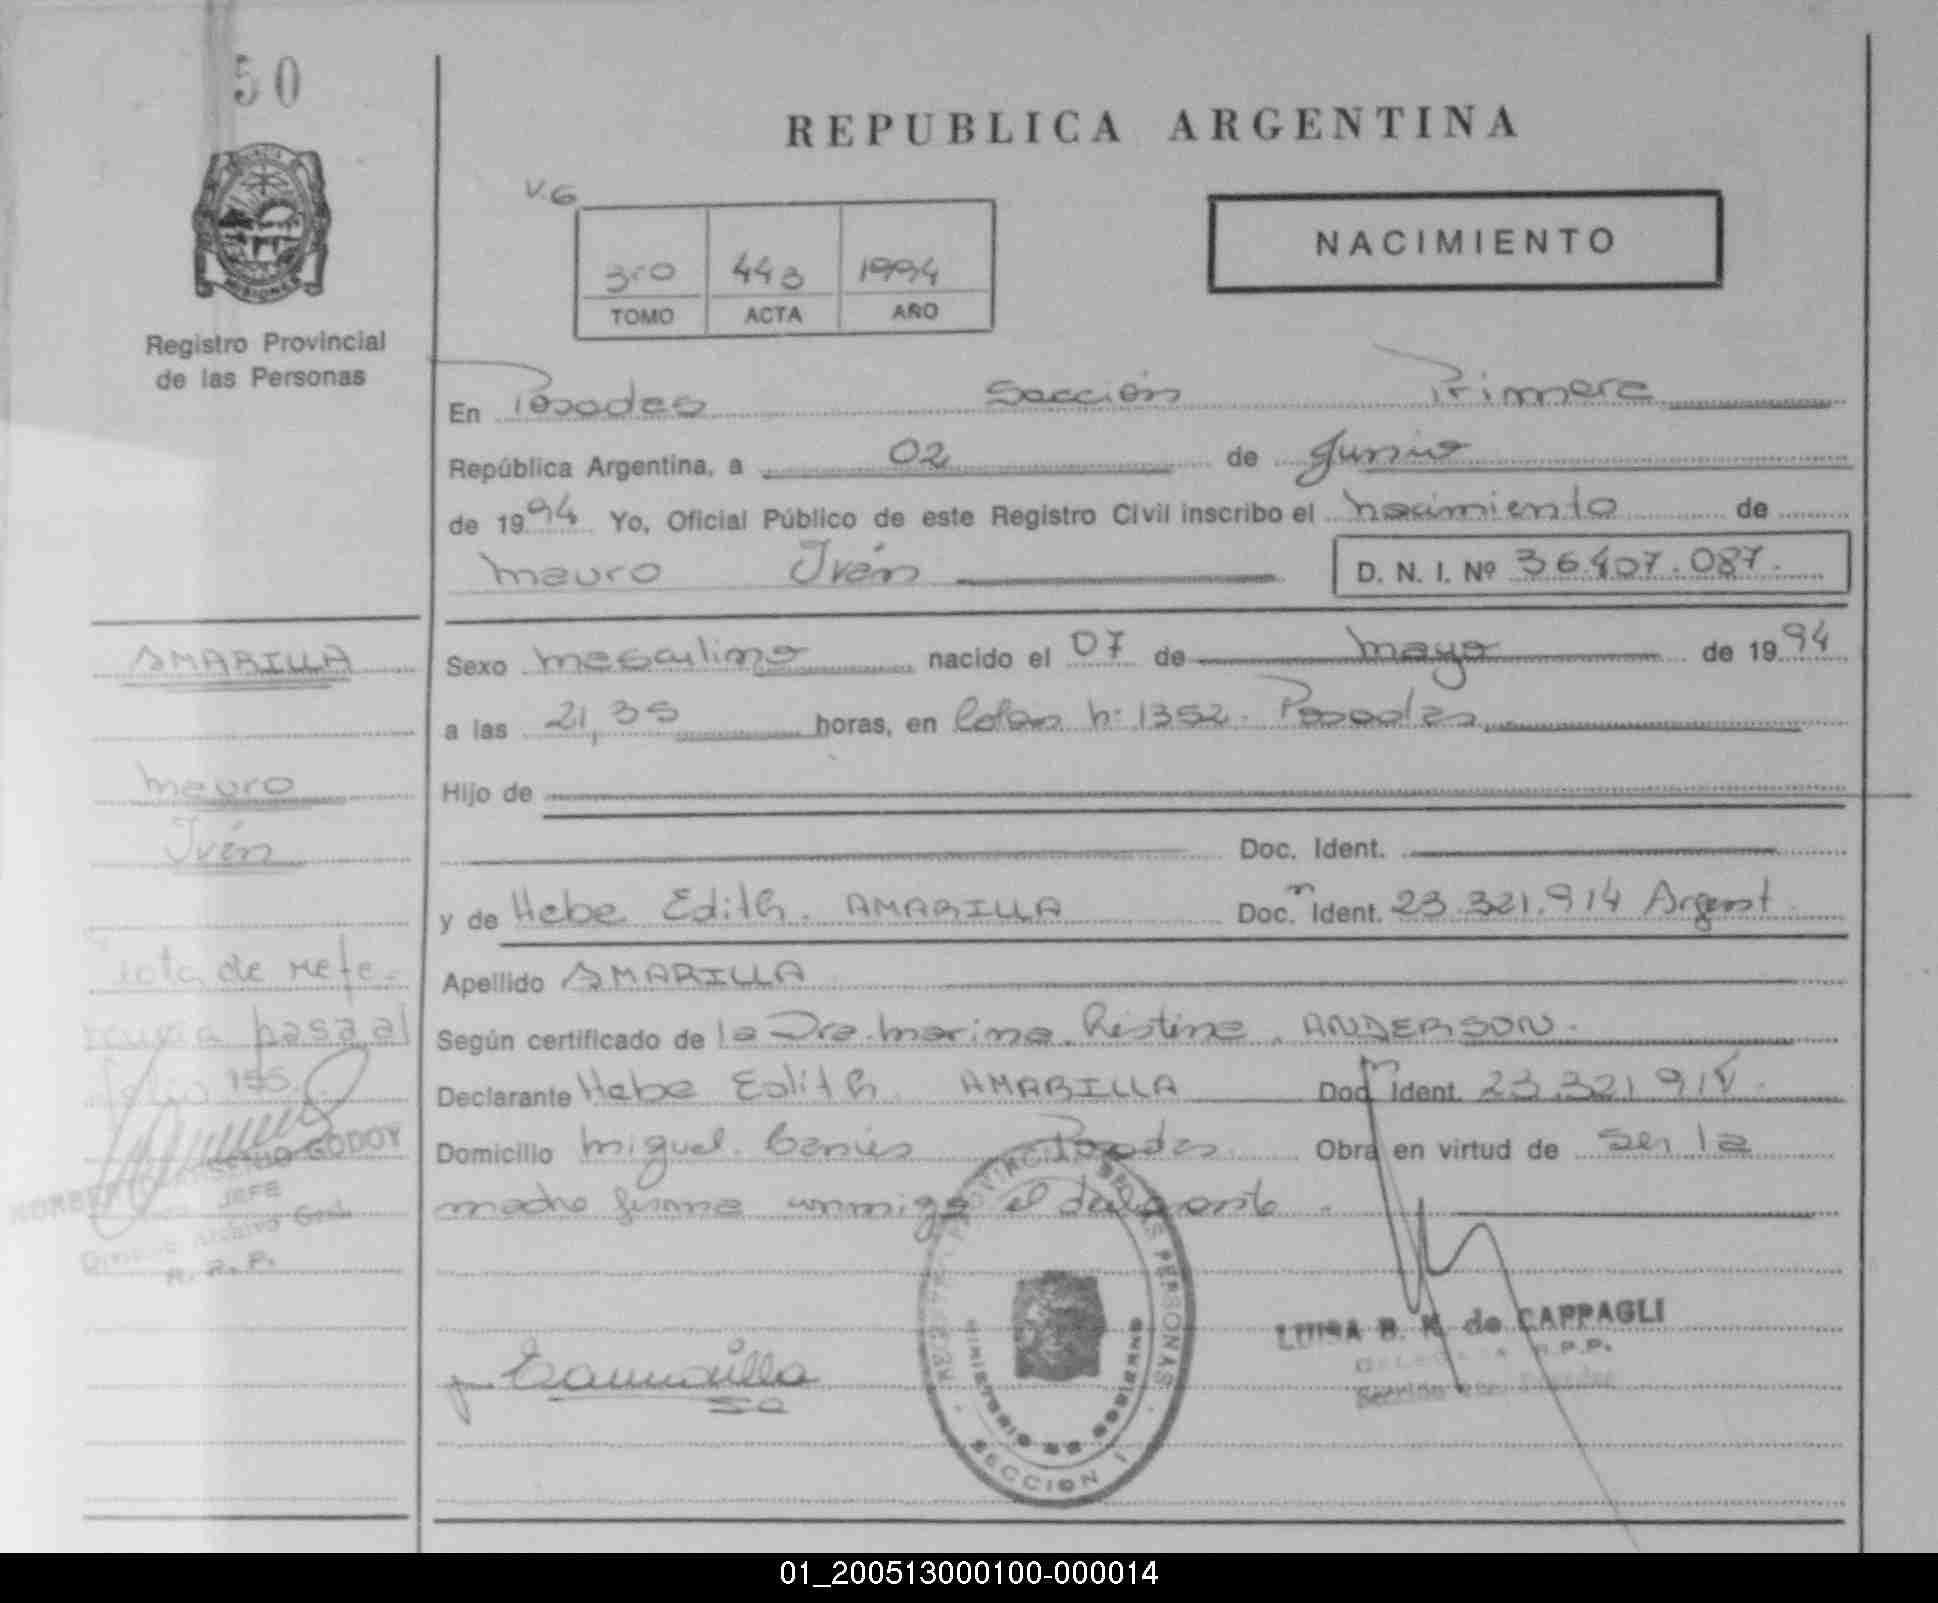 50
REPUBLICA ARGENTINA
V.G
NACIMIENTO
3ro 443 1994
TOMO ACTA AÑO
MISIONES
Registro Provincial
de las Personas
En Posadas Sección Primera
República Argentina, a 02 de Junio
de 1994 Yo, Oficial Público de este Registro Civil inscribo el nacimiento de
Mauro Iván D. N. I. Nº 36.407.087.
AMARILLA
Sexo masculino nacido el 07 de mayo de 1994
a las 21,35 horas, en Colón n: 1352. Posadas
Mauro
Hijo de
Iván
Doc. Ident.
y de Hebe Edith. AMARILLA Doc. Ident. 23.321.914 Argent
Nota de Refe-
Apellido AMARILLA
rencia pasa al
Según certificado de la Dra. Marina Ristine. ANDERSON.
folio 155.
Declarante Hebe Edith AMARILLA Doc Ident. 23.321.914.
Domicilio Miguel. Posadas. Obra en virtud de ser la
GODOY
JEFE
madre firma conmigo el
Archivo Gral.
R. P. P.
REGISTRO PROVINCIAL DE LAS PERSONAS
MINISTERIO DE GOBIERNO
SECCION 1
LUISA B. K. de CAPPAGLI
DELEGADA R.P.P.
01_200513000100-000014